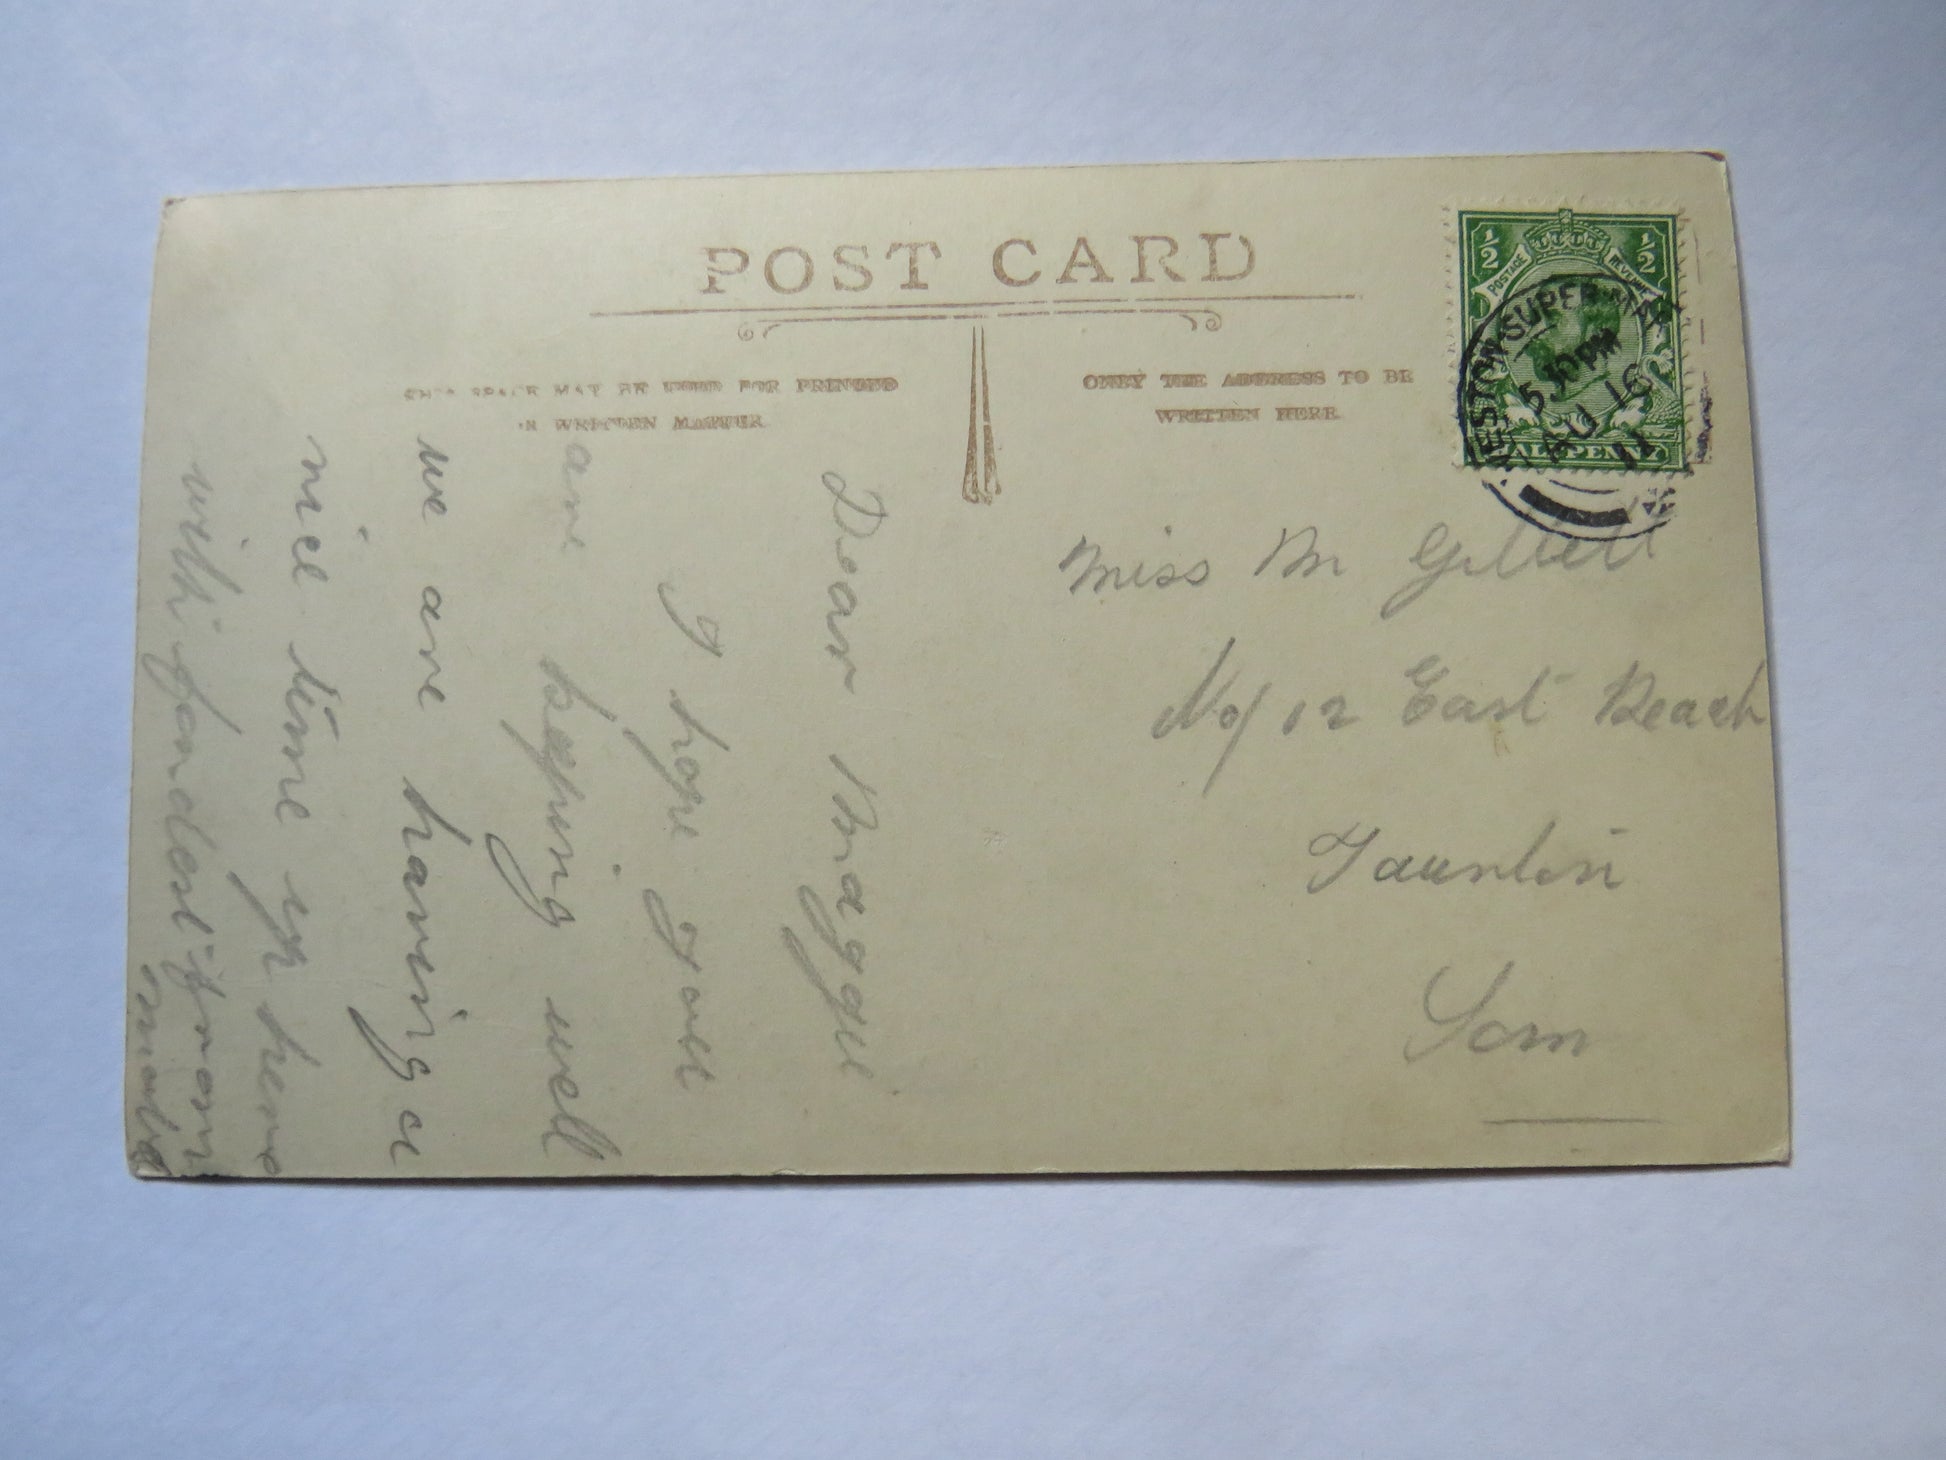 POST CARD
THIS SPACE MAY BE USED FOR PRINTED
OR WRITTEN MATTER
ONLY THE ADDRESS TO BE
WRITTEN HERE
½ ½
POSTAGE REVENUE
HALFPENNY
WESTON-SUPER-MARE
5 PM
AU 16
11
Miss M
No/ 12 East Reach
Taunton
Som
Dear Maggie
I hope you
are keeping well
we are having a
nice time up here
with fondest from